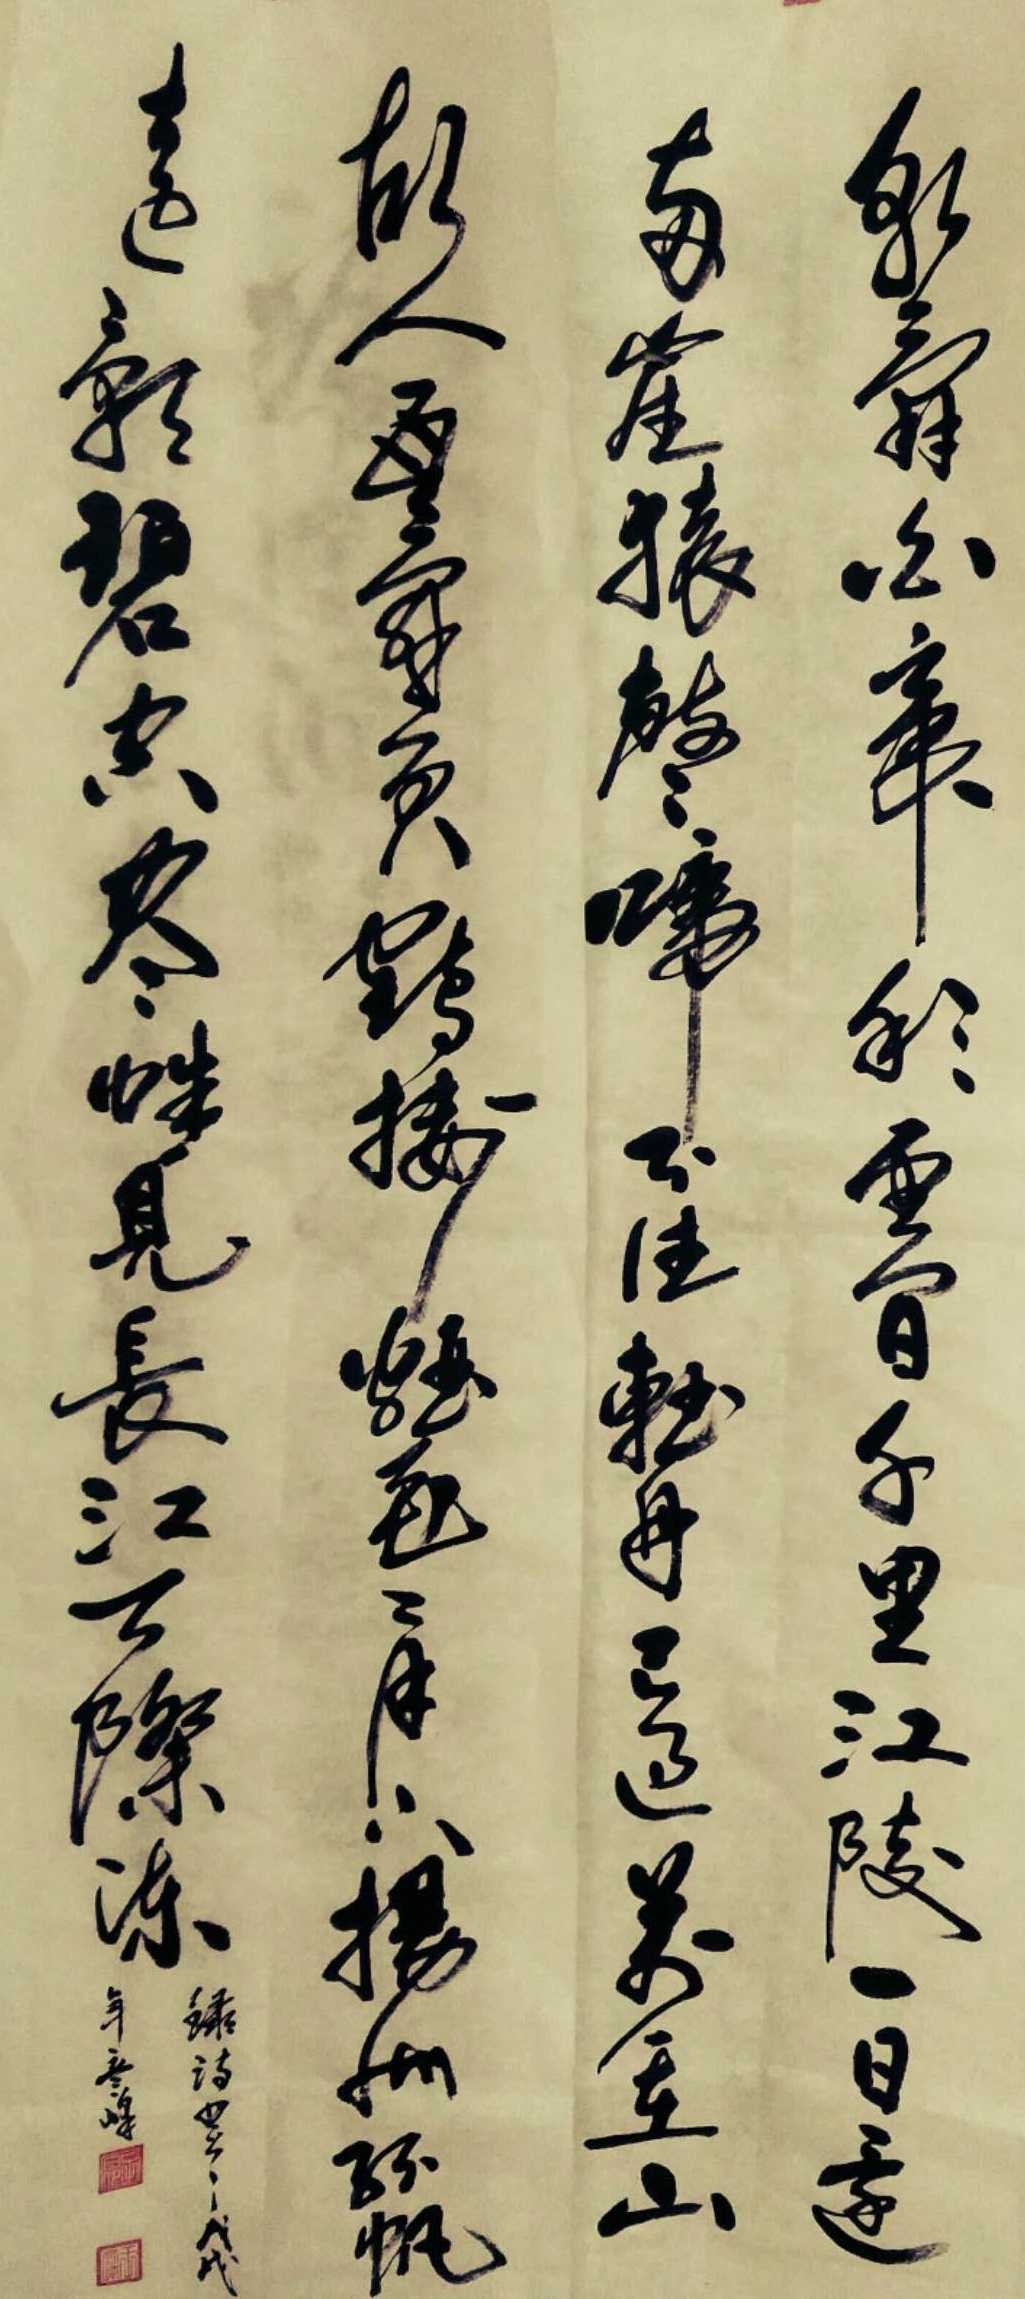 朝辭白帝彩雲間千里江陵一日還
兩岸猿聲啼不住輕舟已過萬重山
故人西辭黃鶴樓煙花三月下揚州孤帆
遠影碧空盡唯見長江天際流
錄詩 戊戌
年彥峰